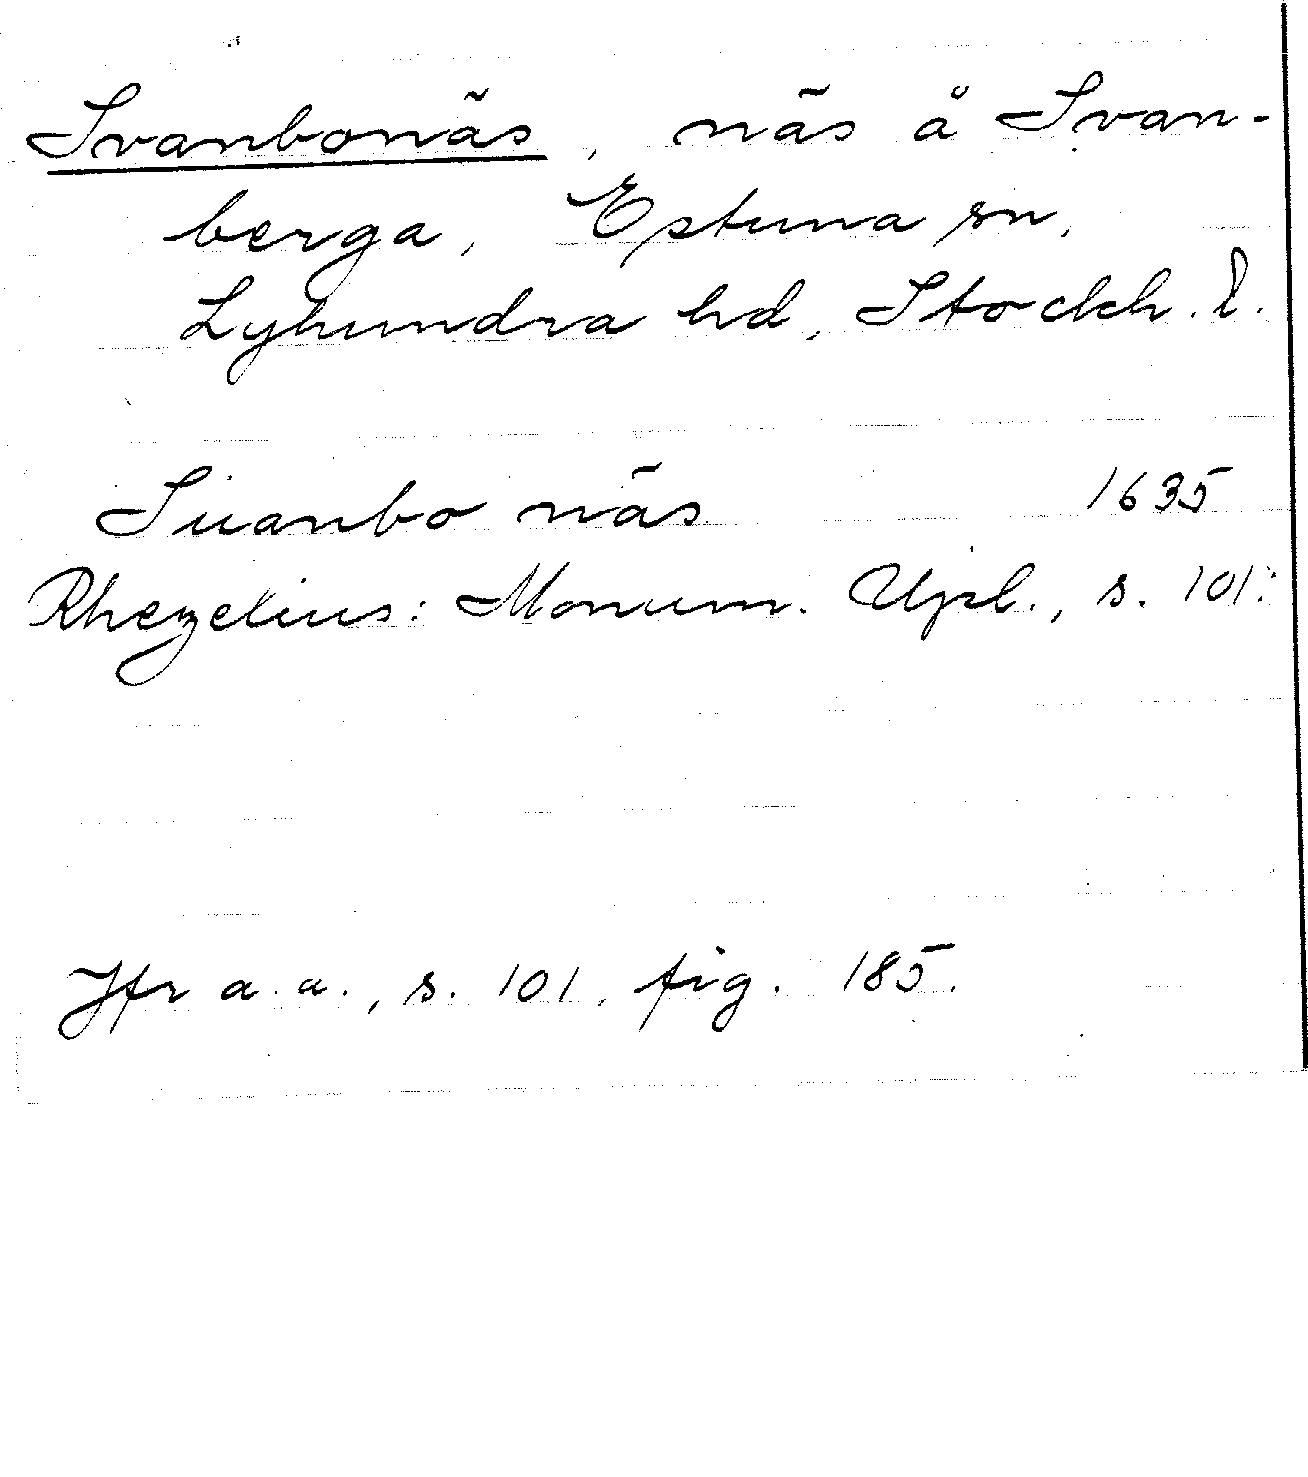 Svanbonäs, näs å Svan-
berga, Estuna sn,
Lyhundra hd, Stockh. l.
Suanbo näs 1635
Rhezelius: Monum. Upl., s. 101.
Jfr a. a., s. 101, fig. 185.